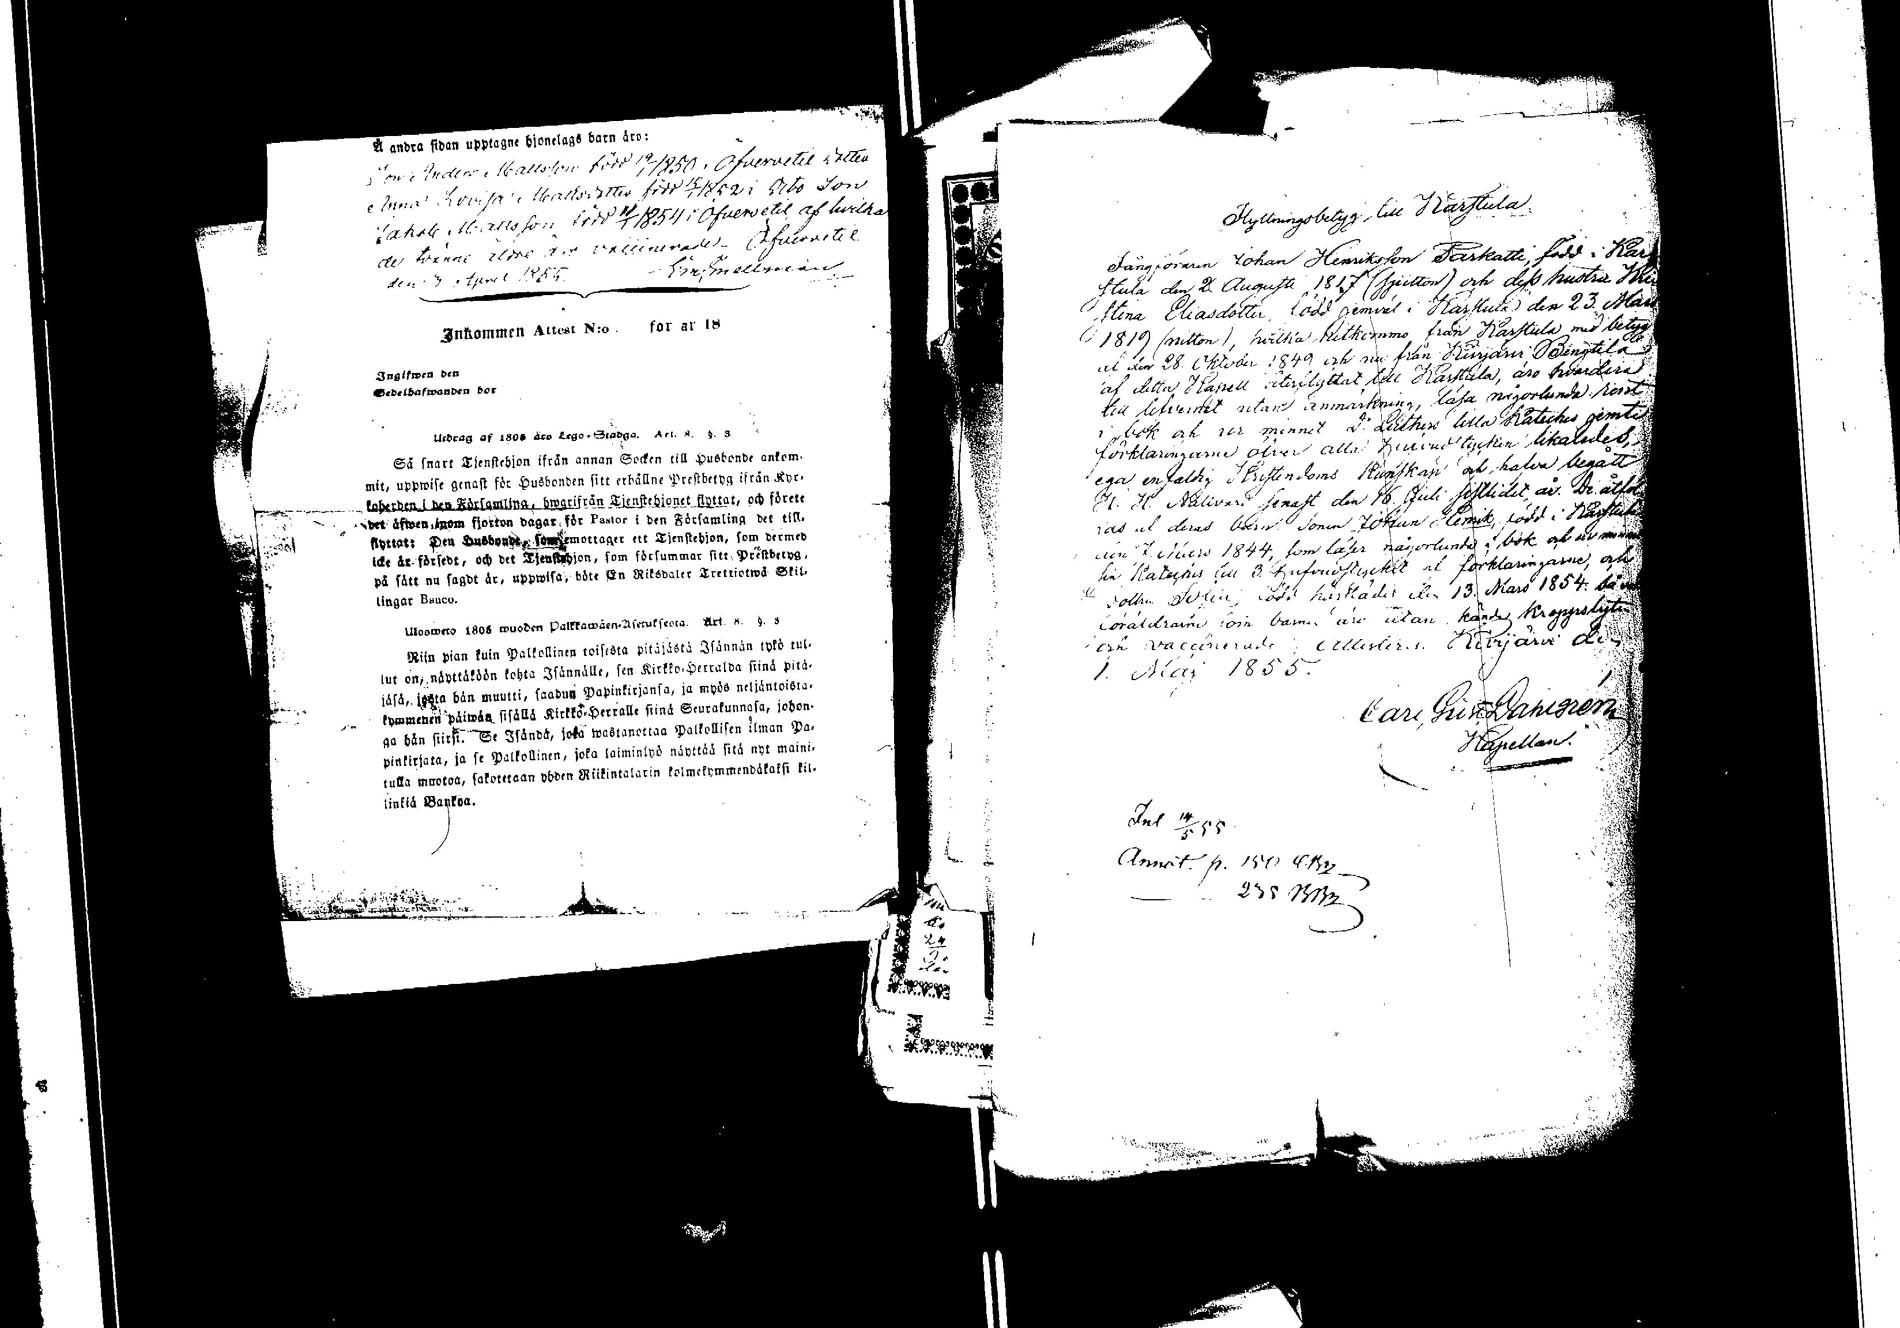 Å andra sidan upptagne hjonelags barn äro:
Son Anders Mattsson född 19/1 1850 i Öfvervetil Dotter
Anna Lovisa Mattsdotter född 1852 i Esbo Son
Jakob Mattsson född 1854 i Öfvervetil, af hvilka
de tvänne äldre äro vaccinerade. Öfvervetil
den 3 April 1855.
Inkommen Attest N:o . för år 18
Ingifwen den
Sedelhafwanden bor
Utdrag af 1805 års Lego-Stadga. Art. 8. §. 3
Så snart Tjenstehjon ifrån annan Socken till Husbonde ankom-
mit, uppwise genast för Husbonden sitt erhållne Prestbetyg ifrån Kyr-
koherden i den Församling, hwarifrån Tjenstehjonet flyttat, och förete
det äfwen inom fjorton dagar för Pastor i den Församling det till-
flyttat: Den Husbonde, som emottager ett Tjenstehjon, som dermed
icke är försedt, och det Tjenstehjon, som försummar sitt Prestbetyg,
på sätt nu sagdt är, uppwisa, böte En Riksdaler Trettiotwå Skil-
lingar Banco.
Ulosweto 1805 wuoden Palkkawäen-Asetuksesta. Art. 8. §. 3
Niin pian kuin Palkollinen toisesta pitäjästä Isännän tykö tul-
lut on, näyttäköön kohta Isännälle, sen Kirkko-Herralda siinä pitä-
jäsä, josta hän muutti, saadun Papinkirjansa, ja myös neljäntoista-
kymmenen päiwän sisällä Kirkko-Herralle siinä Seurakunnasa, johon-
ga hän siirsi. Se Isändä, joka wastanottaa Palkollisen ilman Pa-
pinkirjata, ja se Palkollinen, joka laiminlyö näyttää sitä nyt maini-
tulla muotoa, sakotetaan yhden Riikintalarin kolmekymmendäkaksi kil-
linkiä Bankoa.
Flyttningsbetyg, till Karstula.
Johan Henriksson Parkatti, född i Kar-
stula den 2 Augusti 1817 (sjutton) och dess hustru Kri-
stina Eliasdotter, född jemväl i Karstula den 23 Mars
1819 (nitton), hvilka hitkommo från Karstula med betyg
af den 28 Oktober 1849 och nu från Kivijärvi
af detta Kapell återflyttat till Karstula, äro hvardera
till lefvernet utan anmärkning, läsa någorlunda rent
i bok och ur minnet D. Luthers lilla Kateches jemte
förklaringarne öfver alla hufvudstycken likaledes,
ega enfaldig Kristendoms Kunskap och hafva begått
H. H. Nattvard senast den 16 Juli sistlidet år. De åtföl-
jas af deras barn Sonen Johan Henrik, född i Karstula
den 7 Mars 1844, som läser någorlunda i bok och ur minne
sin Kateches till 3. hufvudstycket af förklaringarne, och
dottren född härstädes den 13. Mars 1854. Så väl
föräldrarne som barnen äro utan kända kroppslyten
och vaccinerade; attesteras. Kivijärvi den
1. Maj 1855.
Carl Gust. Dahlgren
Kapellan.
Inl 14/5 55.
Annot. p. 150
— 235